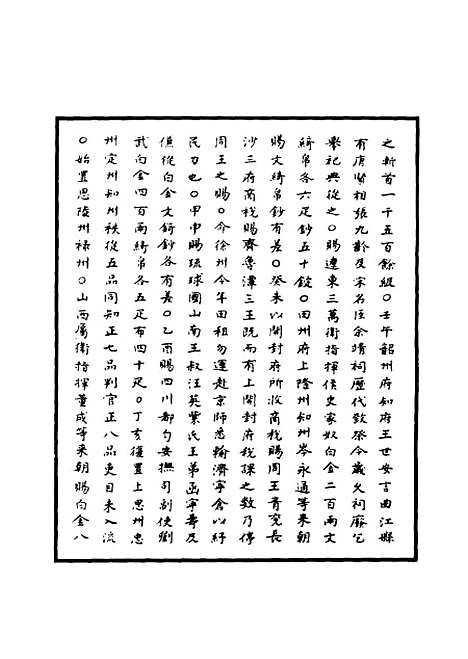 之斬首一千五百餘級○壬午韶州府知府王世安言曲江縣
有唐賢相張九齡及宋名臣余靖祠歷代致祭今歲久祠廢乞
舉祀典從之○賜遼東三萬衛指揮侯史家奴白金二百兩文
綺帛各六疋鈔五十錠○田州府上隆州知州岑永通等來朝
賜文綺帛鈔有差○癸未以開封府所收商稅賜周王青兗長
沙三府商稅賜齊魯潭三王既而有上開封府稅課之數乃停
周王之賜○令徐州今年田租勿運赴京師悉輸濟寧倉以紓
民力也○甲申賜琉球國山南王叔汪英紫氏王弟函寧壽及
傔從白金文綺鈔各有差○乙酉賜四川都勻安撫司副使劉
武白金四百兩綺帛各五疋布四十疋○丁亥復置上思州忠
州定州知州秩從五品同知正七品判官正八品吏目未入流
○始置思陵州祿州○山西屬衛指揮董成等來朝賜白金八